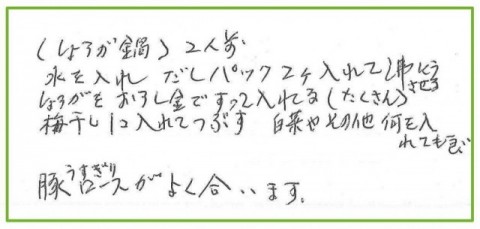 (しょうが鍋) 2人分
水を入れ だしパック2ヶ入れて沸とうさせる
しょうがをおろし金ですって入れる(たくさん)
梅干し1コ入れてつぶす 白菜やその他何を入れても良い
豚うすぎりロースがよく合います。